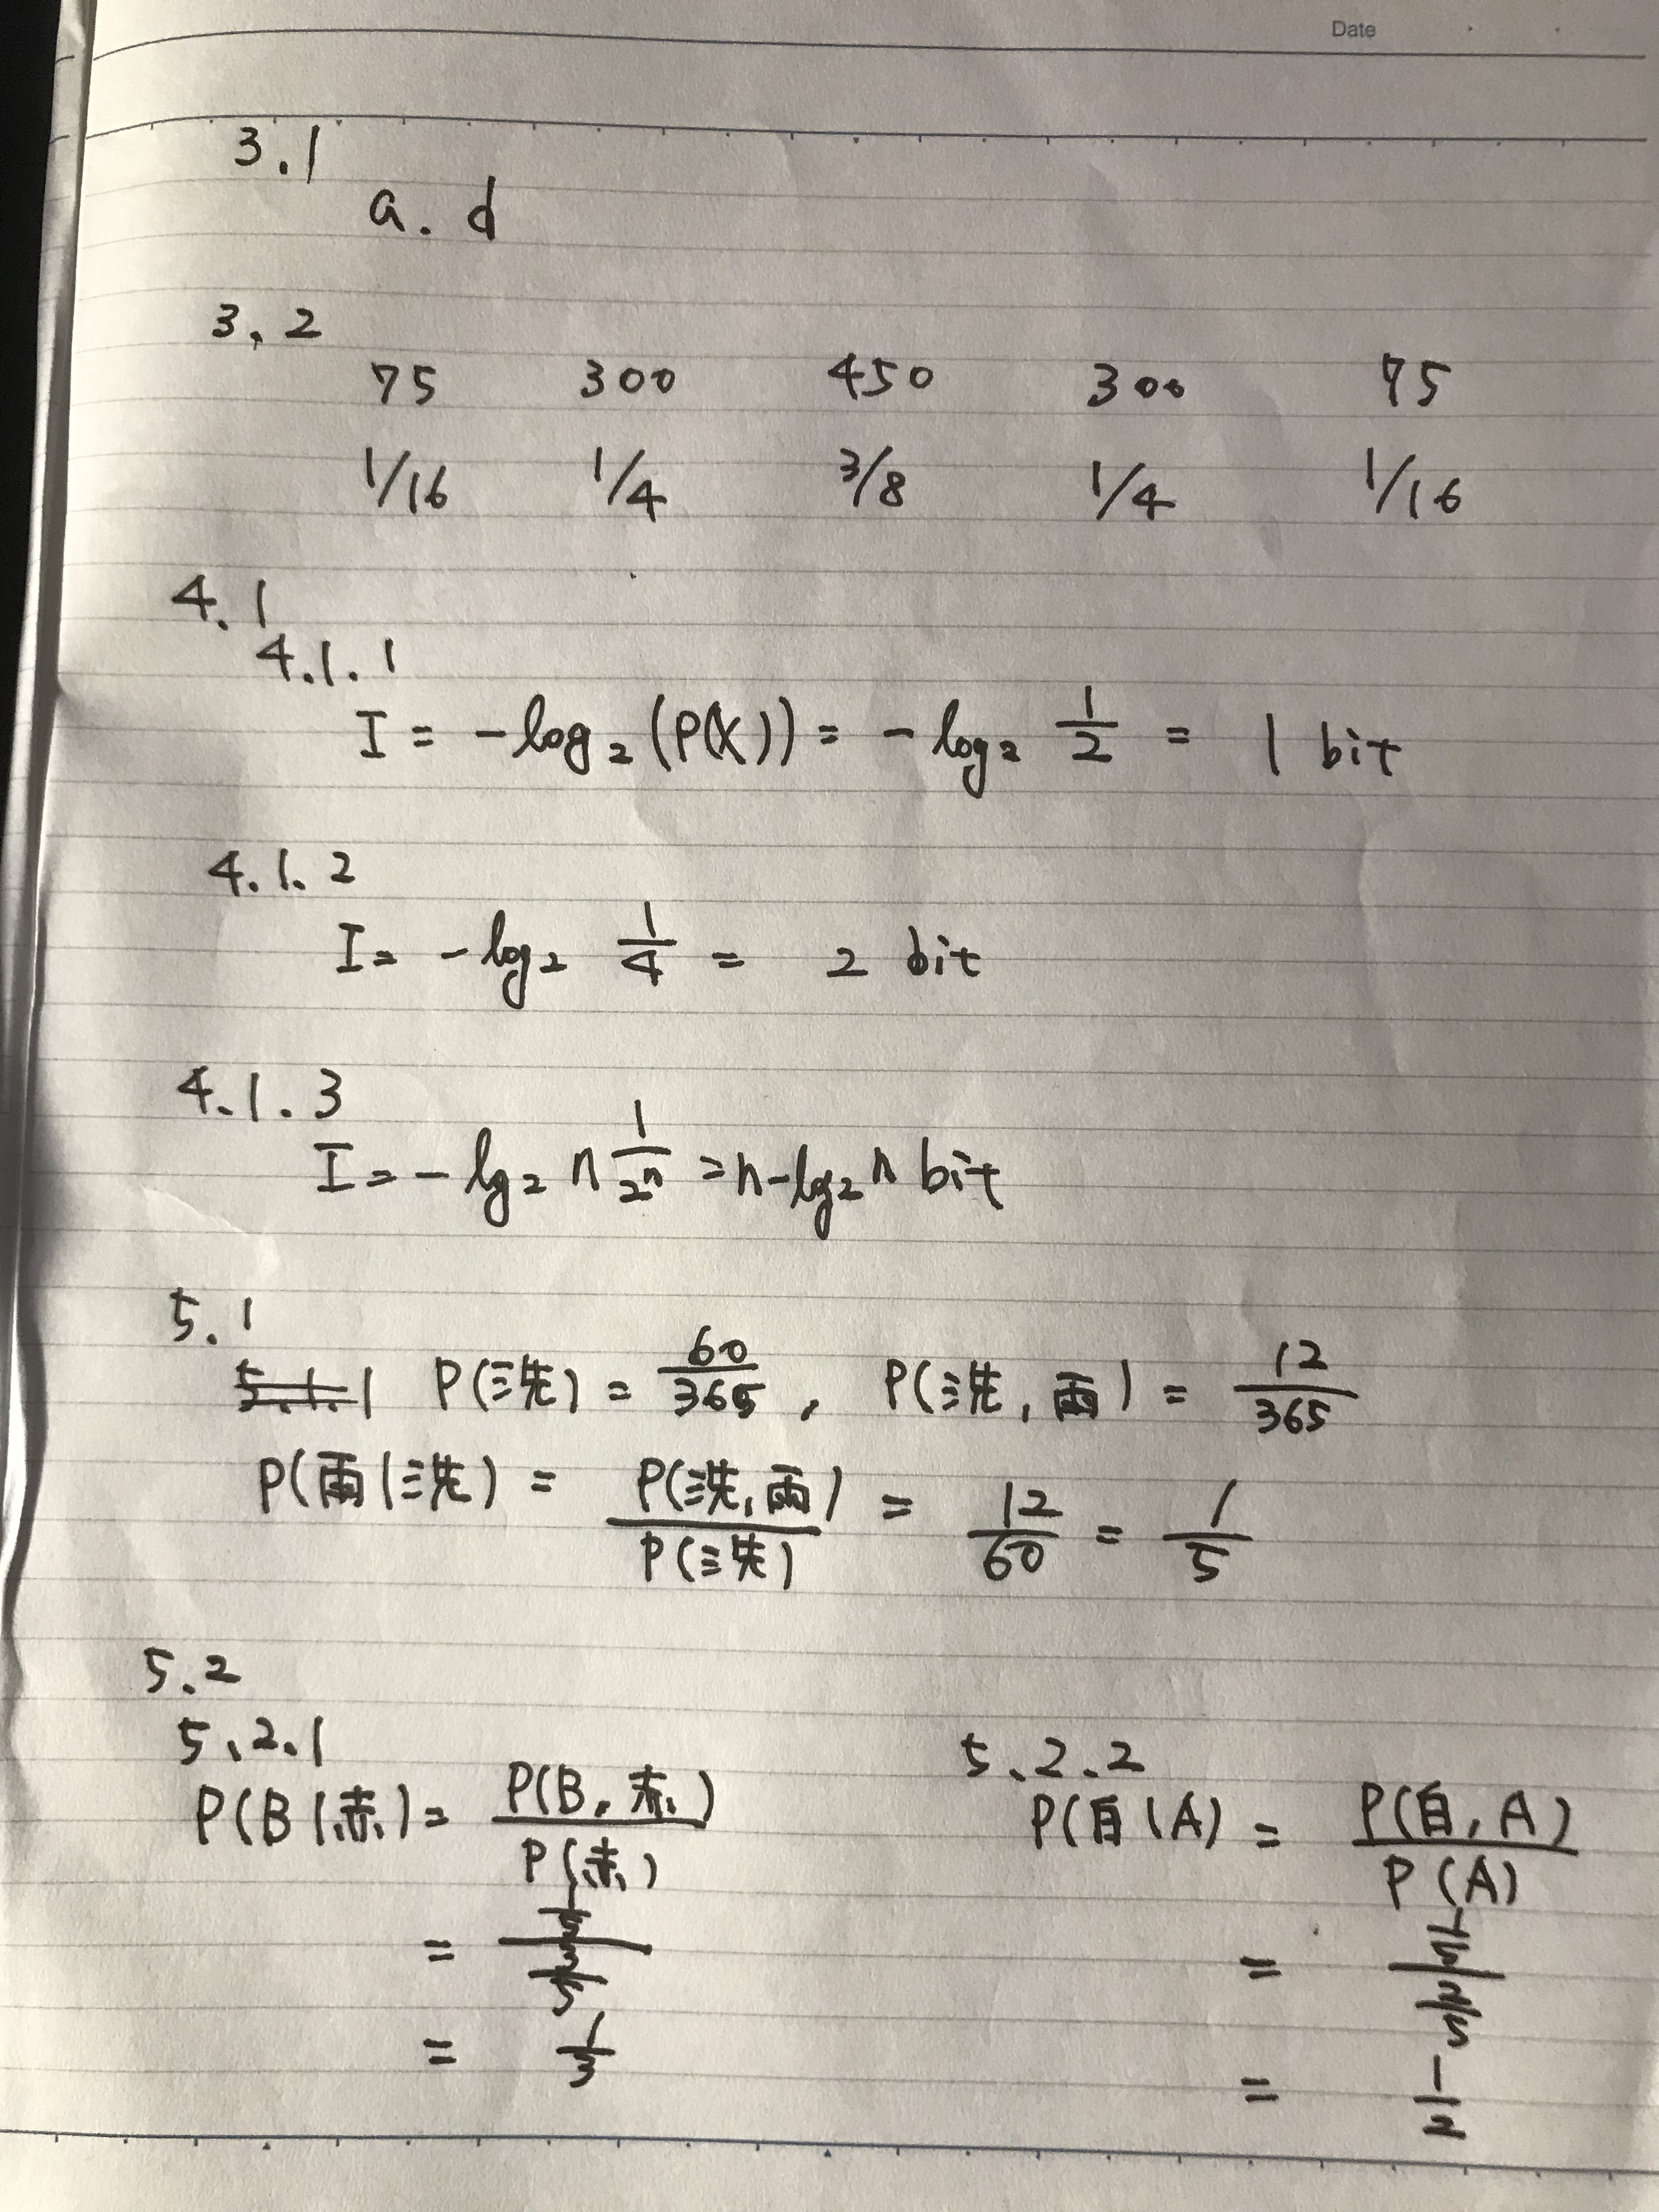 Date
3.1
a. d
3.2
75 300 450 300 75
1/16 1/4 3/8 1/4 1/16
4.1
4.1.1
I = -log₂(P(X)) = -log₂ 1/2 = 1 bit
4.1.2
I = -log₂ 1/4 = 2 bit
4.1.3
I = -lg₂ n 1/2ⁿ = n-lg₂ n bit
5.1
P(洗) = 60/365, P(洗, 雨) = 12/365
P(雨|洗) = P(洗, 雨)/P(洗) = 12/60 = 1/5
5.2
5.2.1 5.2.2
P(B|赤) = P(B, 赤)/P(赤) P(白|A) = P(白, A)/P(A)
= 1/5/3/5 = 1/5/2/5
= 1/3 = 1/2